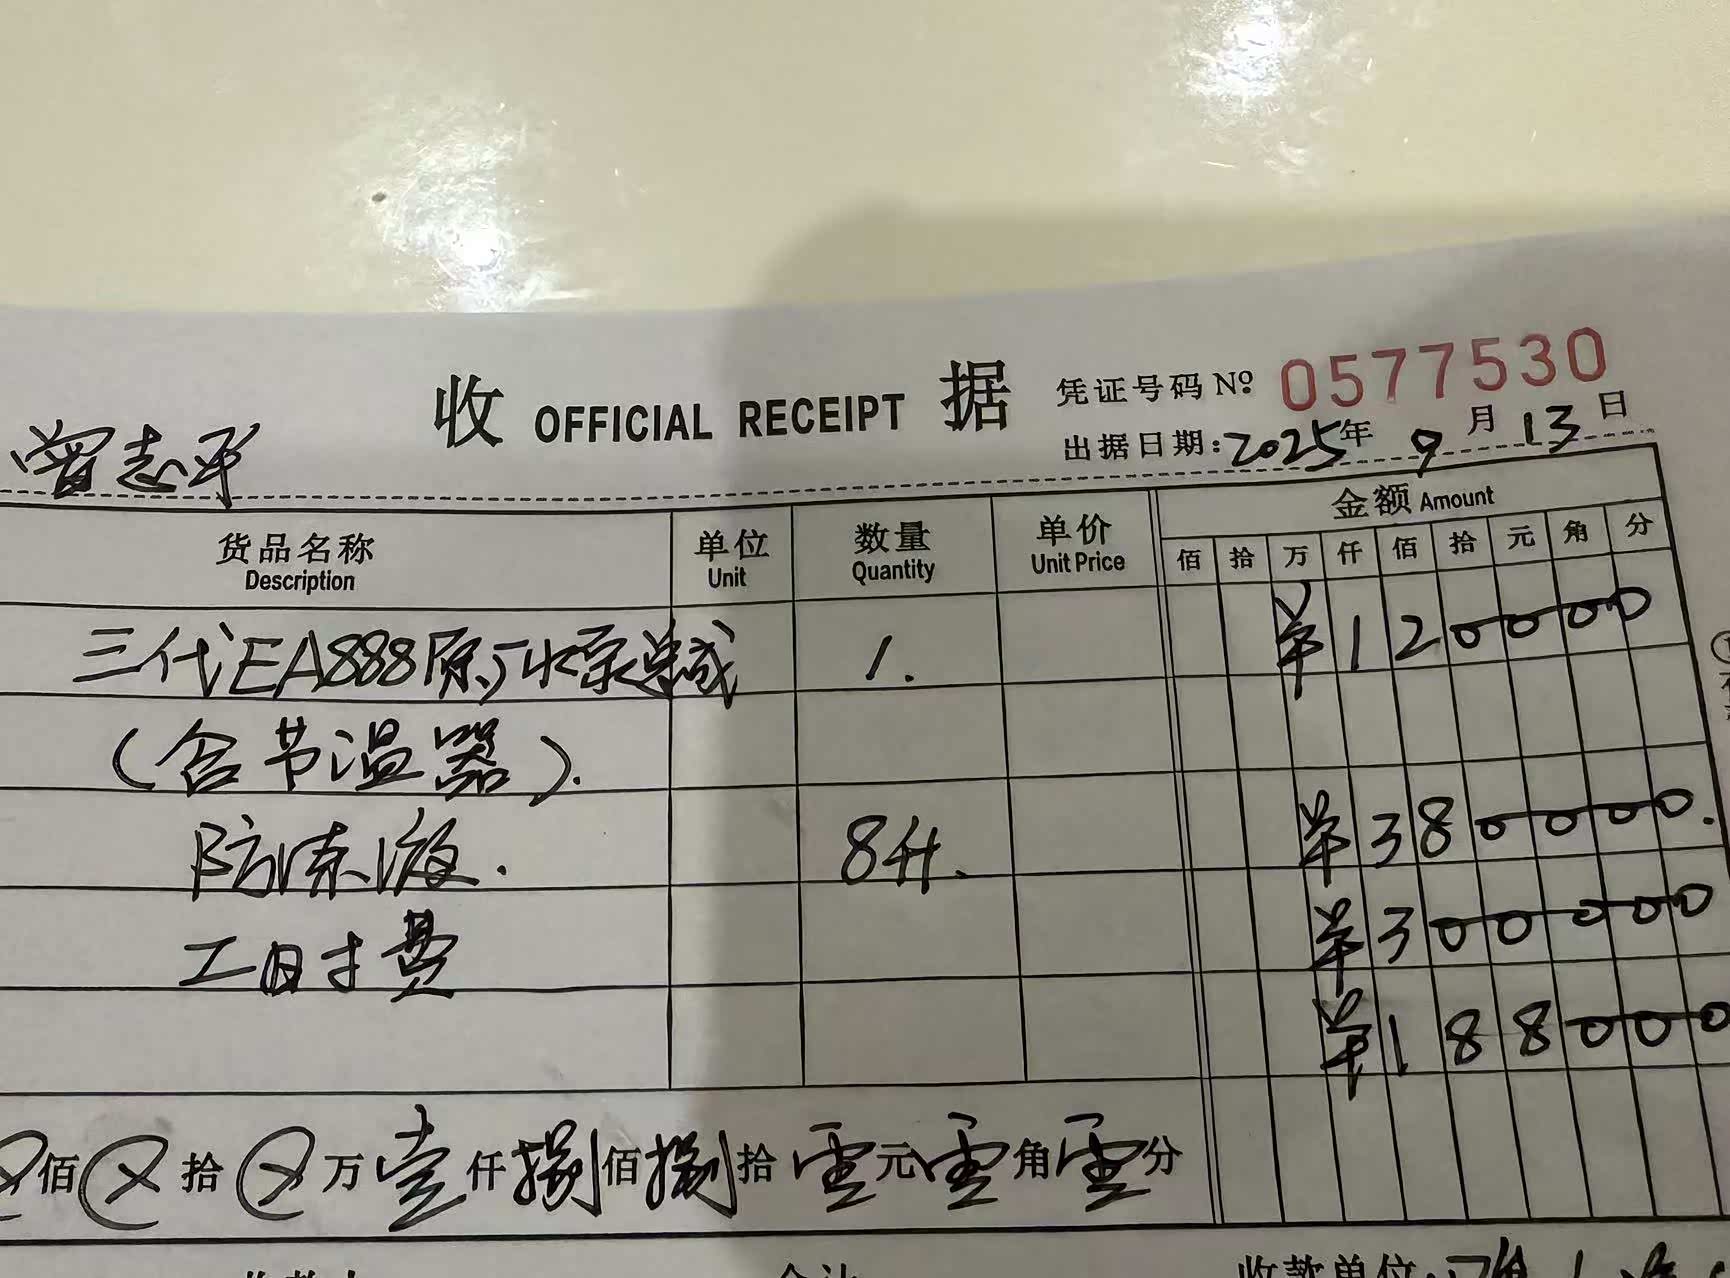 收 OFFICIAL RECEIPT 据
凭证号码 Nº 0577530
出据日期:2025年9月13日
曾志平
货品名称 单位 数量 单价 金额 Amount
Description Unit Quantity Unit Price
佰 拾 万 仟 佰 拾 元 角 分
三代EA888原厂水泵总成 1. ¥120000
(含节温器).
防冻液. 8升. ¥380000.
工时费 ¥300000
¥188000
佰 ⊗ 拾 ⊗ 万 壹 仟 捌 佰 捌 拾 零 元 零 角 零 分
收款单位: